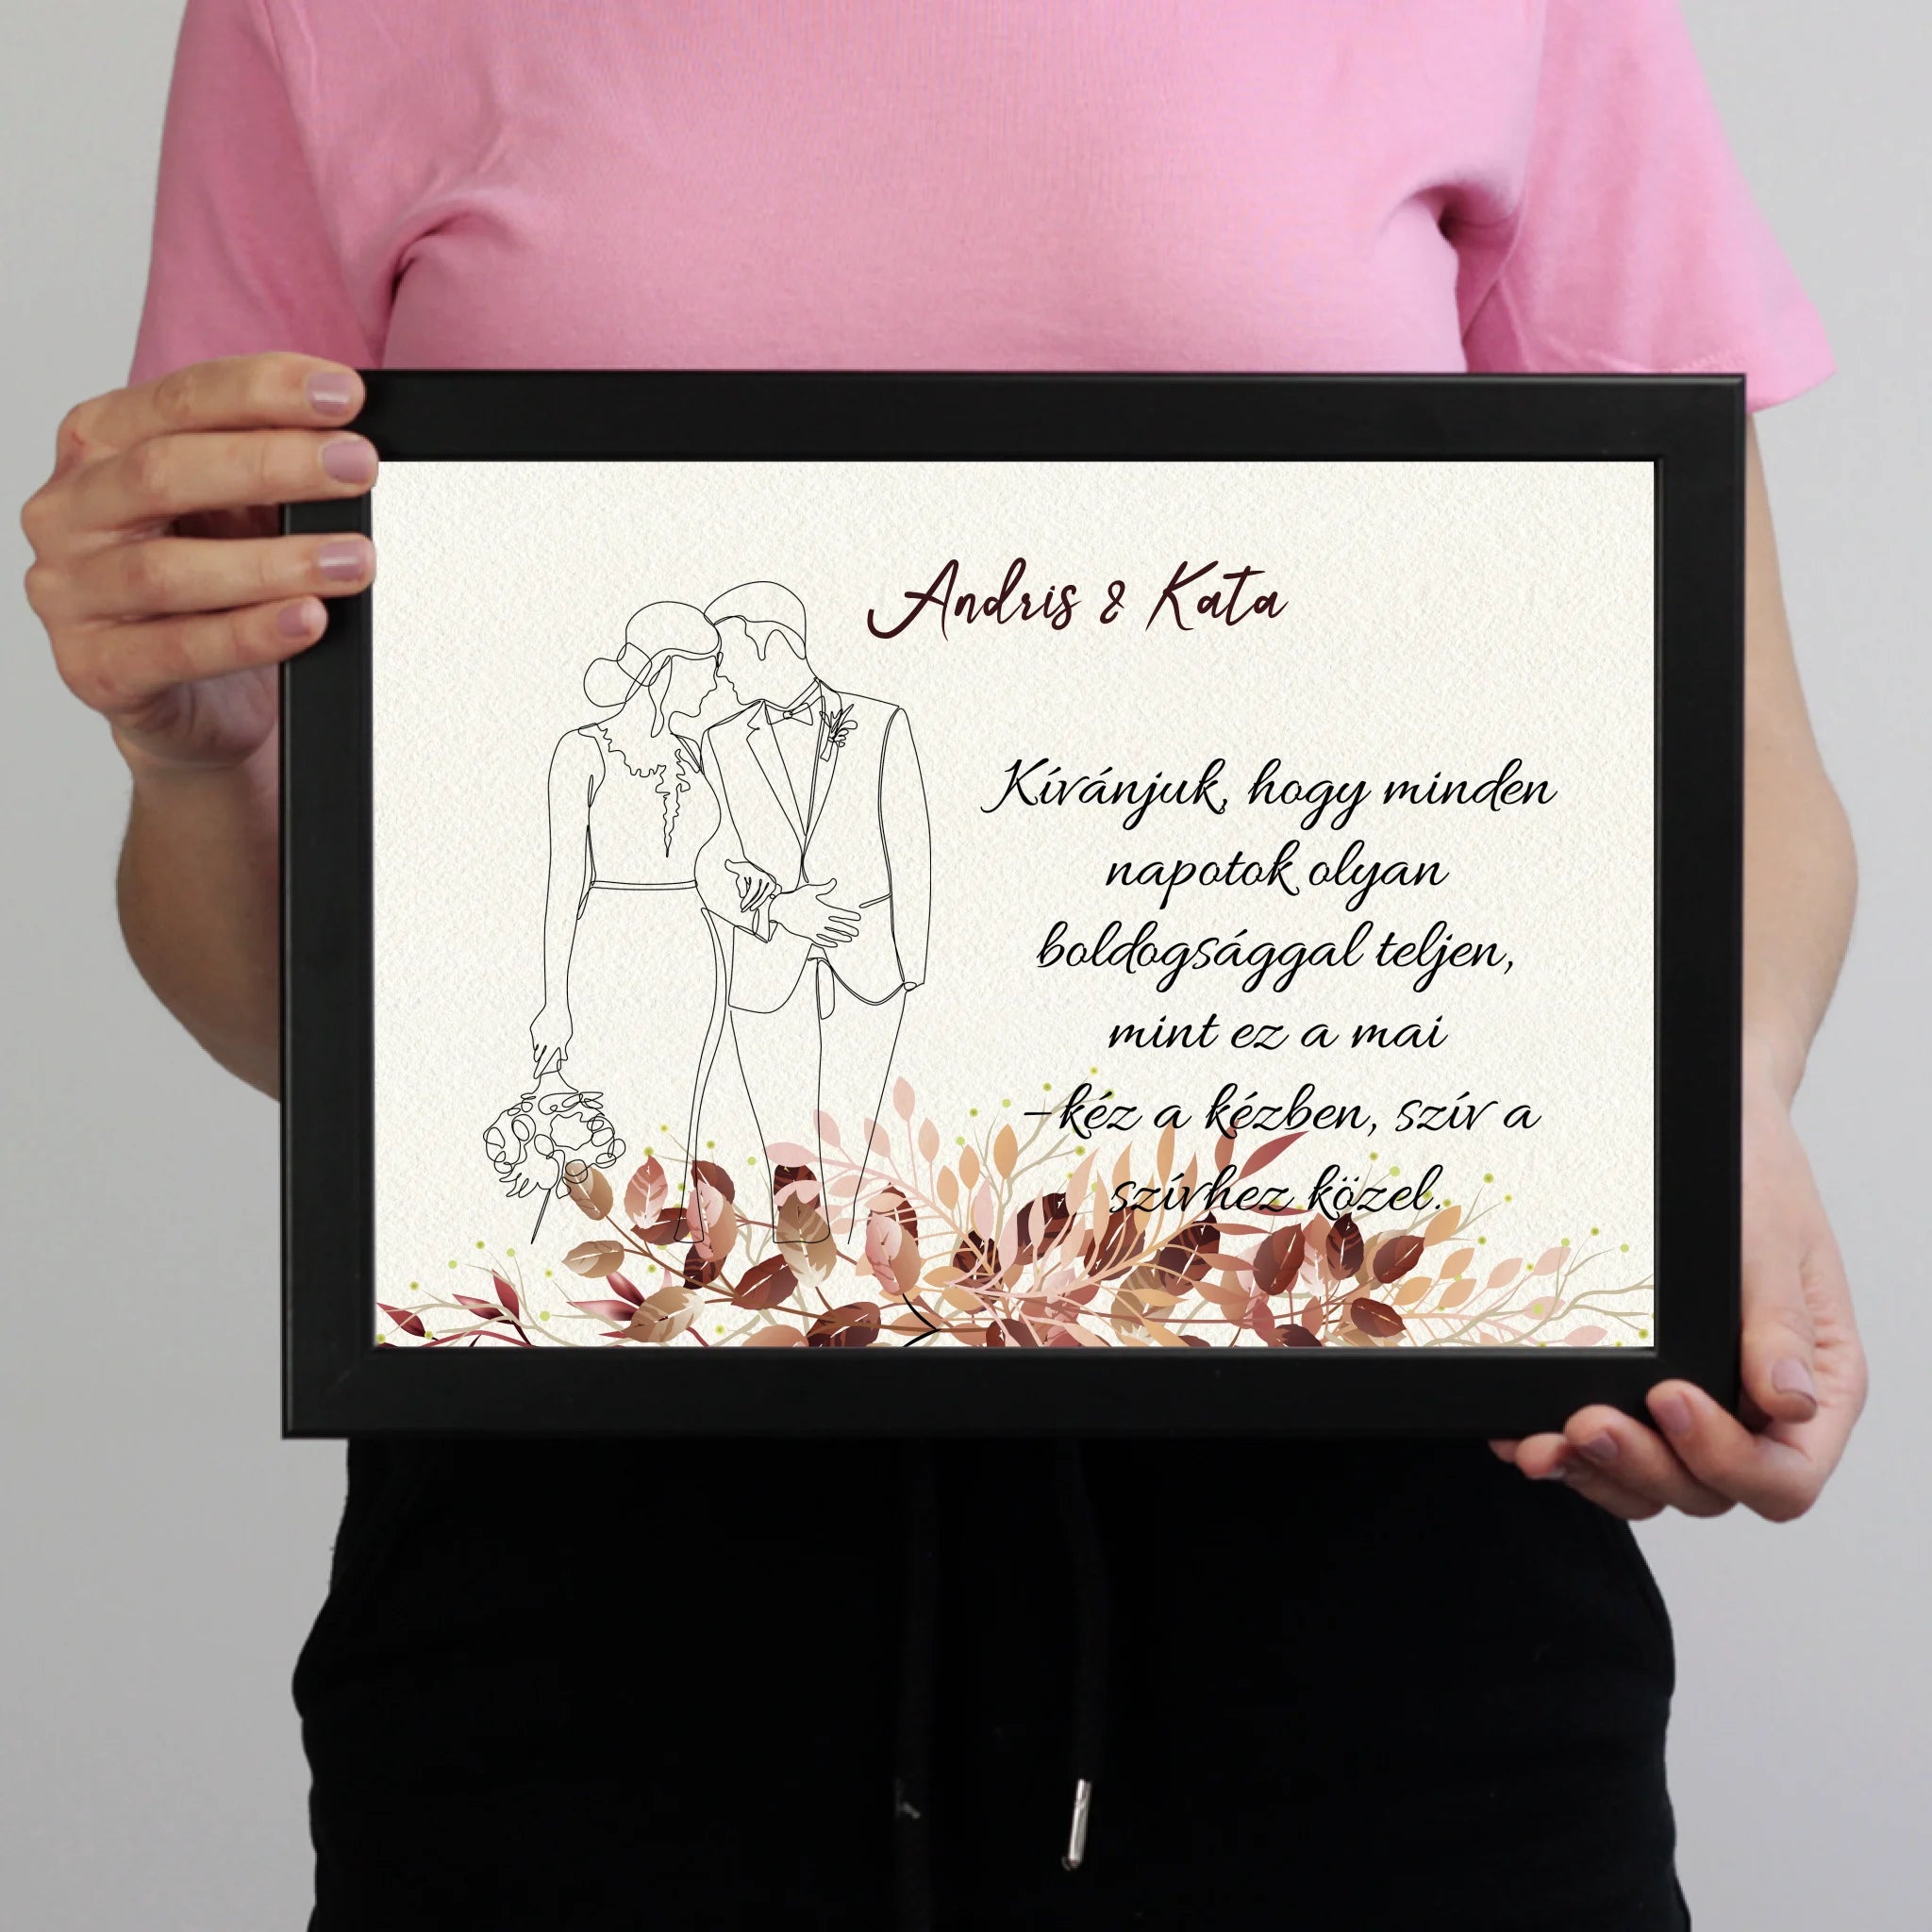 Andris & Kata
Kívánjuk, hogy minden
napotok olyan
boldogsággal teljen,
mint ez a mai
–kéz a kézben, szív a
szívhez közel.